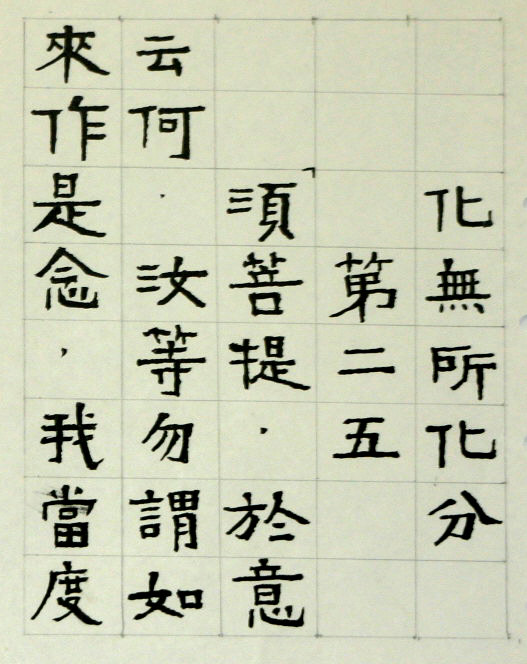 化無所化分
第二五
「須菩提．於意
云何．汝等勿謂如
來作是念，我當度